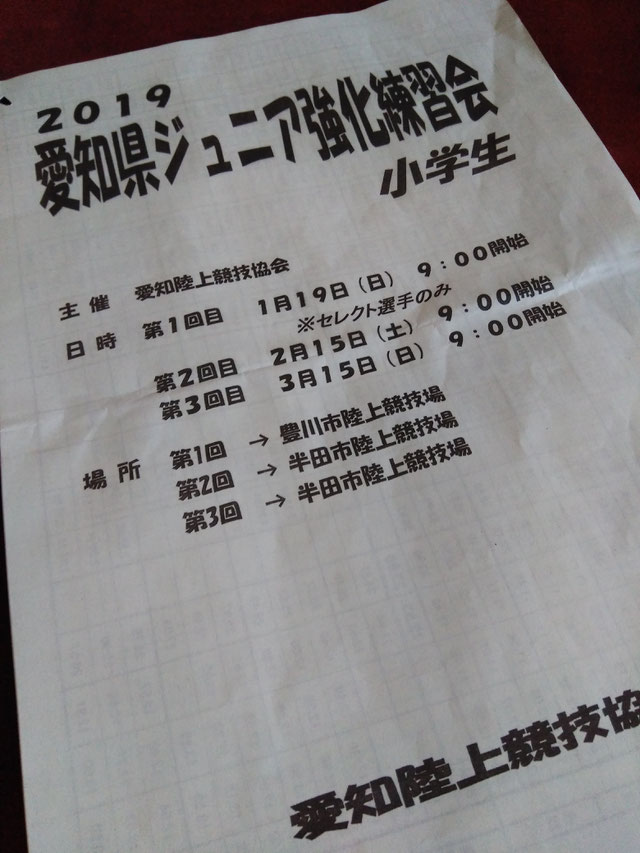 2019
愛知県ジュニア強化練習会
小学生
主催 愛知陸上競技協会
日時 第1回目 1月19日(日) 9:00開始
※セレクト選手のみ
第2回目 2月15日(土) 9:00開始
第3回目 3月15日(日) 9:00開始
場所 第1回 → 豊川市陸上競技場
第2回 → 半田市陸上競技場
第3回 → 半田市陸上競技場
愛知陸上競技協